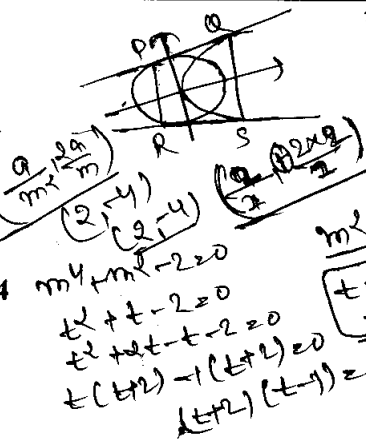 P Q
R S
(a/m², 2a/m)
(2, -4)
(2, -4)
m⁴ + m² - 2 = 0
t² + t - 2 = 0
t² + 2t - t - 2 = 0
t(t+2) - 1(t+2) = 0
(t+2)(t-1) =
m²
t